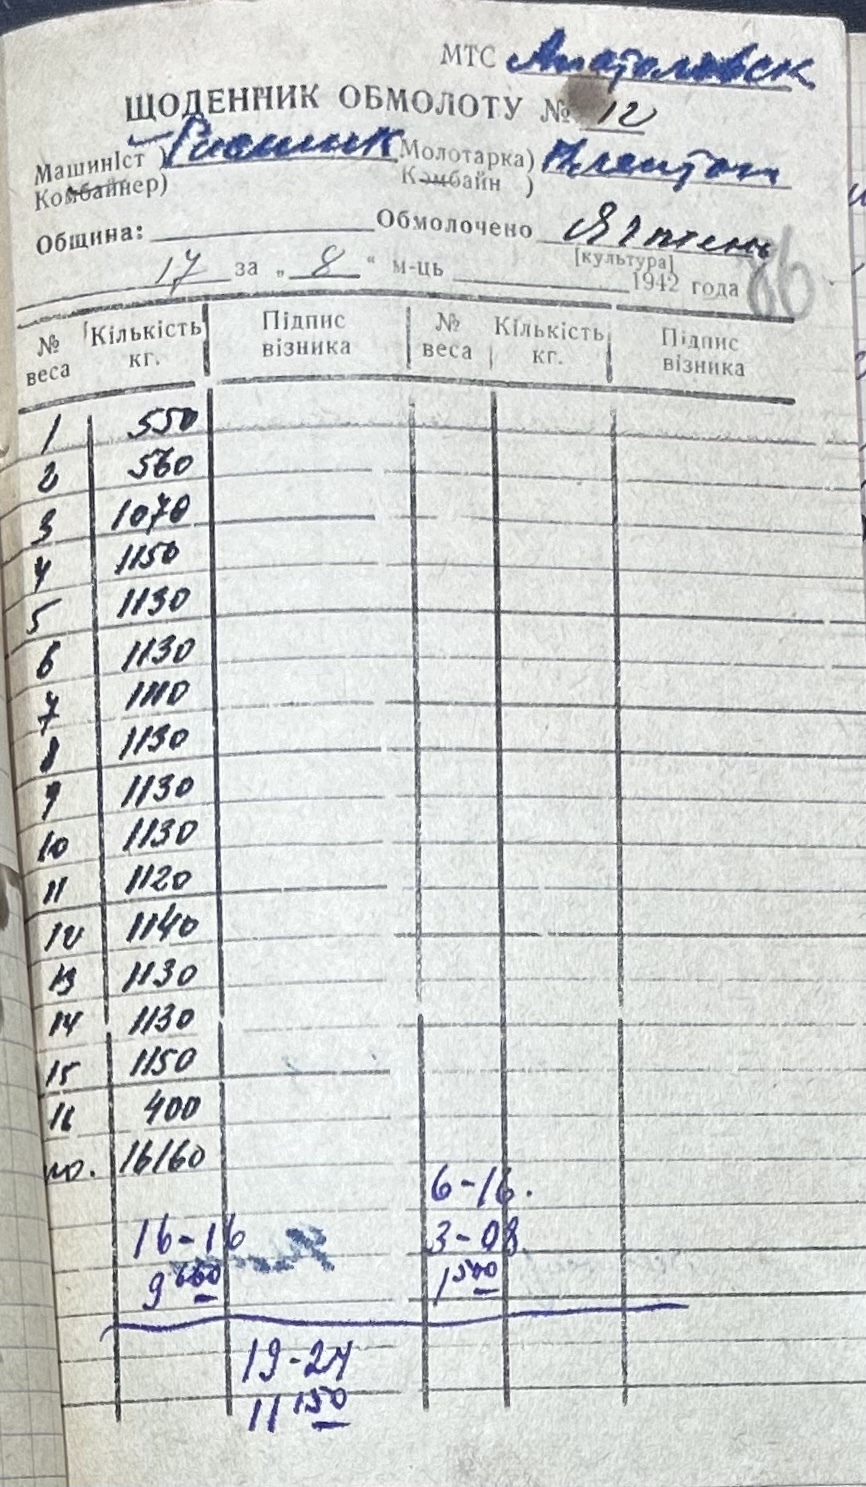 МТС Анатолієвск
ЩОДЕННИК ОБМОЛОТУ № 12
Машиніст ) Молотарка)
Комбайнер) Комбайн )
Община: Обмолочено Ячмень
[культура]
17 за „ 8 “ м-ць 1942 года 86
№ веса Кількість кг. Підпис візника № веса Кількість кг. Підпис візника
1 550
2 560
3 1070
4 1150
5 1130
6 1130
7 1110
8 1130
9 1130
10 1130
11 1120
12 1140
13 1130
14 1130
15 1150
16 400
16160
6-16.
16-16 3-08
9 660 1 500
19-24
11 150